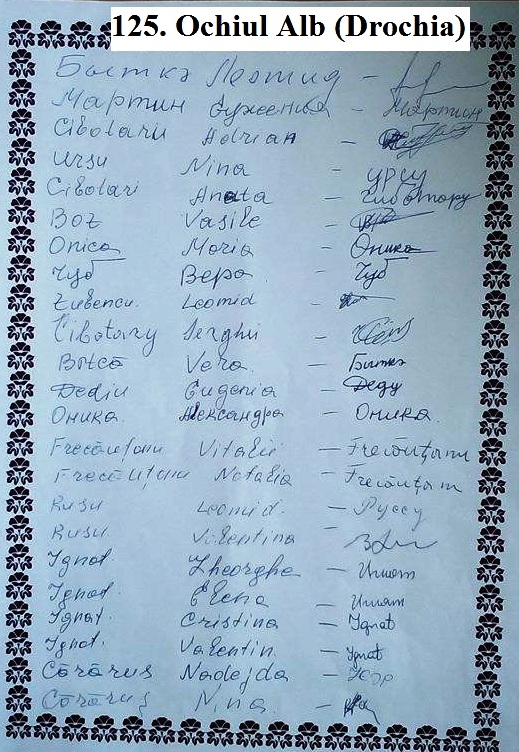 125. Ochiul Alb (Drochia)
Быткэ Леонид -
Мартин Евгения - Мартин
Cibotaru Adrian -
Ursu Nina - Урсу
Cibotari Anata - Чиботару
Boz Vasile -
Onica Maria - Оника
Чуб Вера - Чуб
Leonid -
Cibotary Serghii -
Vera - Быткэ
Dediu Eugenia - Деду
Оника Александра - Оника.
Frecăuțanu Vitalii - Frecăuțanu
Frecăuțanu Natalia - Frecăuțanu
Rusu Leonid. - Руссу
Rusu Valentina -
Ignat Gheorghe - Игнат
Ignat. Elena - Игнат
Ignat. Cristina - Ignat
Ignat. Valentin - Ignat
Cărăruș Nadejda -
Cărăruș Nina -